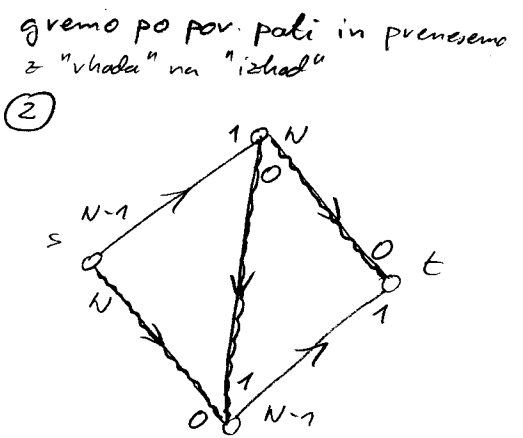 gremo po pov. poti in prenesemo
z "vhoda" na "izhod"
2
1 N
0
N-1
s
0
t
N
1
1
0 N-1